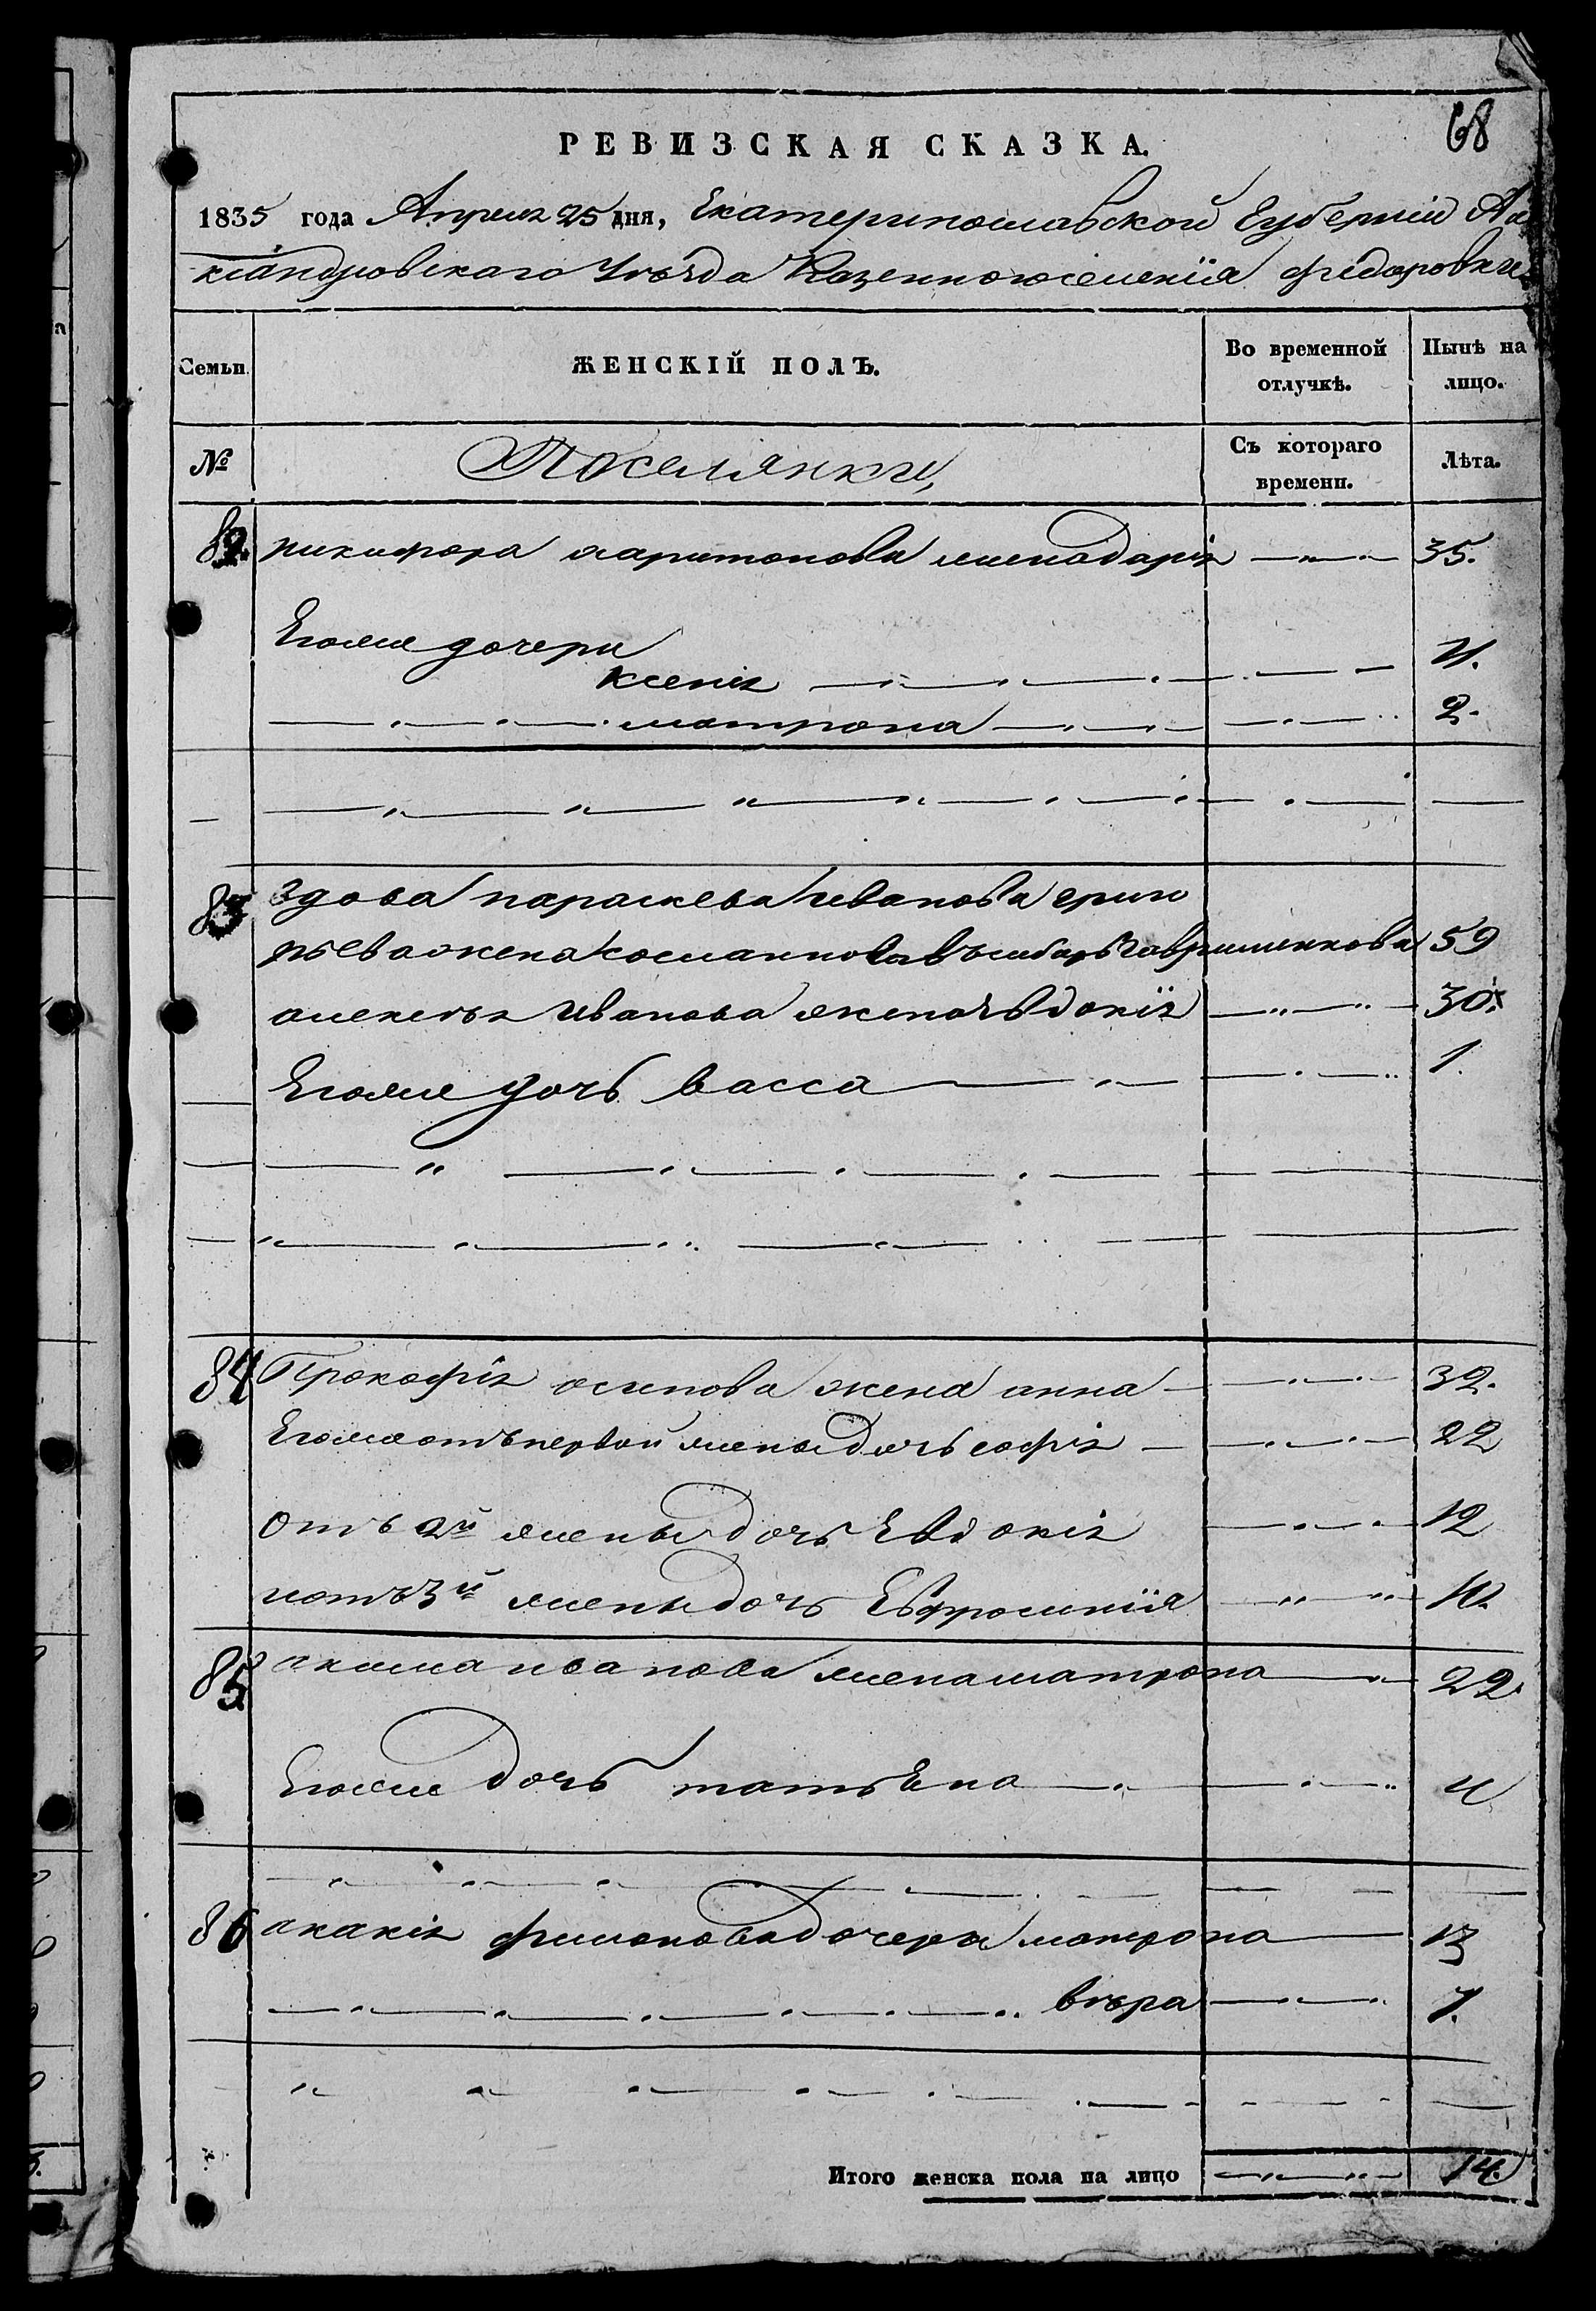 68
РЕВИЗСКАЯ СКАЗКА.
1835 года Апреля 25 дня, Екатеринославской Губерніи Але
ксандровскаго Уѣзда Казенногоселенія Федоровки
Семьи.
ЖЕНСКІЙ ПОЛЪ.
Во временной отлучкѣ.
Нынѣ на лицо.
№
Поселянки,
Съ котораго времени.
Лѣта.
82. никифора харитонова жена дарія 35.
Егоже дочери
Ксенія 4.
матрона 2.
83 вдова параскева иванова григо
рьева жена 59
алексѣя иванова жена Евдокія 30.
Егоже дочь васса 1.
84 Прокофія осипова жена анна 32.
Егоже отъ первой жены дочь софія 22
Отъ 2й жены дочь Евдокія 12
и отъ 3й жены дочь Евфросинія 10.
85 якима иванова жена матрона 22.
Егоже дочь татьяна 4
86 акакія филонова дочери матрона 13
вѣра 7.
Итого женска пола на лицо 14.